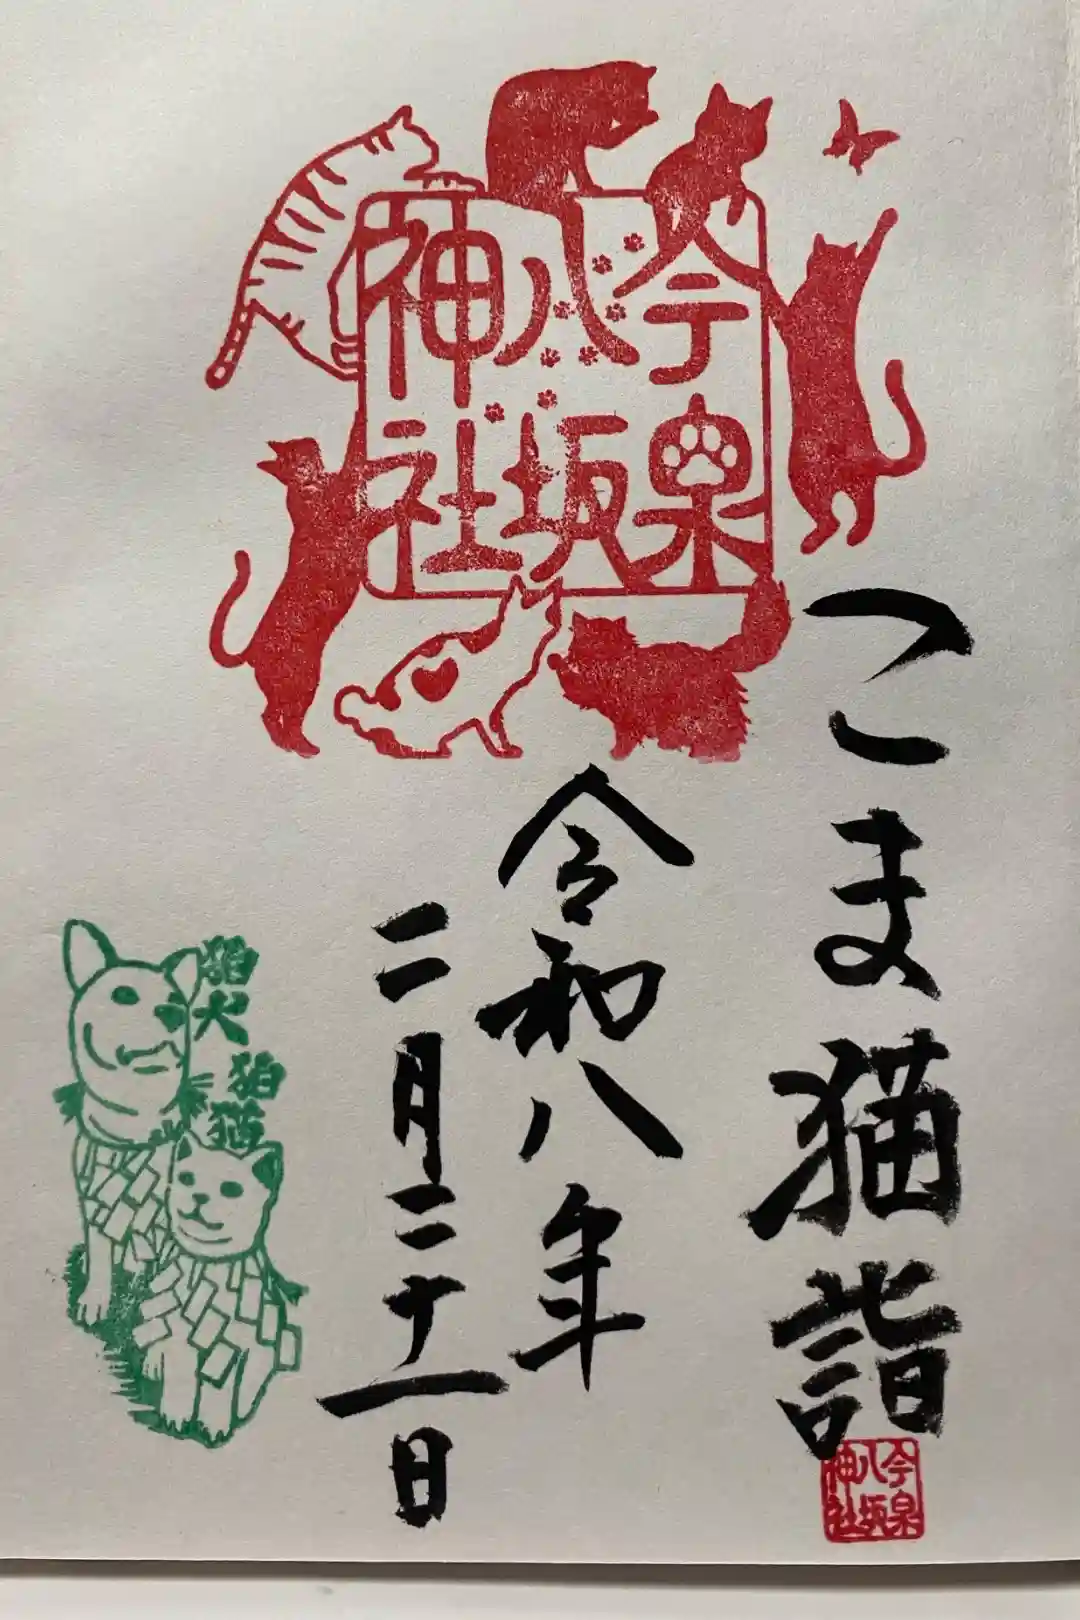 今泉
八坂
神社
こま猫詣
令和八年
二月二十一日
狛犬
狛猫
今泉
八坂
神社